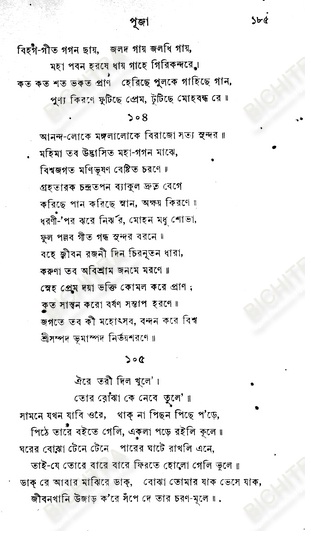 পূজা ১৮৫
বিহগ-গীত গগন ছায়, জলদ গায় জলধি গায়,
মহা পবন হরষে ধায় গাহে গিরিকন্দরে।
কত কত শত ভকত প্রাণ হেরিছে পুলকে গাহিছে গান,
পুণ্য কিরণে ফুটিছে প্রেম, টুটিছে মোহবন্ধ রে॥
১০৪
আনন্দ-লোকে মঙ্গলালোকে বিরাজো সত্য সুন্দর॥
মহিমা তব উদ্ভাসিত মহা-গগন মাঝে,
বিশ্বজগত মণিভূষণ বেষ্টিত চরণে॥
গ্রহতারক চন্দ্রতপন ব্যাকুল দ্রুত বেগে
করিছে পান করিছে স্নান, অক্ষয় কিরণে॥
ধরণী-'পর ঝরে নির্ঝর, মোহন মধু শোভা,
ফুল পল্লব গীত গন্ধ সুন্দর বরনে॥
বহে জীবন রজনী দিন চিরনূতন ধারা,
করুণা তব অবিশ্রাম জনমে মরণে॥
স্নেহ প্রেম দয়া ভক্তি কোমল করে প্রাণ;
কত সান্ত্বন করো বর্ষণ সন্তাপ হরণে॥
জগতে তব কী মহোৎসব, বন্দন করে বিশ্ব
শ্রীসম্পদ ভূমাস্পদ নির্ভয়শরণে॥
১০৫
ঐরে তরী দিল খুলে'।
তোর বোঝা কে নেবে তুলে'॥
সামনে যখন যাবি ওরে, থাক্ না পিছন পিছে প'ড়ে,
পিঠে তারে বইতে গেলি, একলা পড়ে রইলি কূলে॥
ঘরের বোঝা টেনে টেনে পারের ঘাটে রাখলি এনে,
তাই-যে তোরে বারে বারে ফিরতে হোলো গেলি ভুলে॥
ডাক্ রে আবার মাঝিরে ডাক্, বোঝা তোমার যাক ভেসে যাক,
জীবনখানি উজাড় ক'রে সঁপে দে তার চরণ-মূলে॥